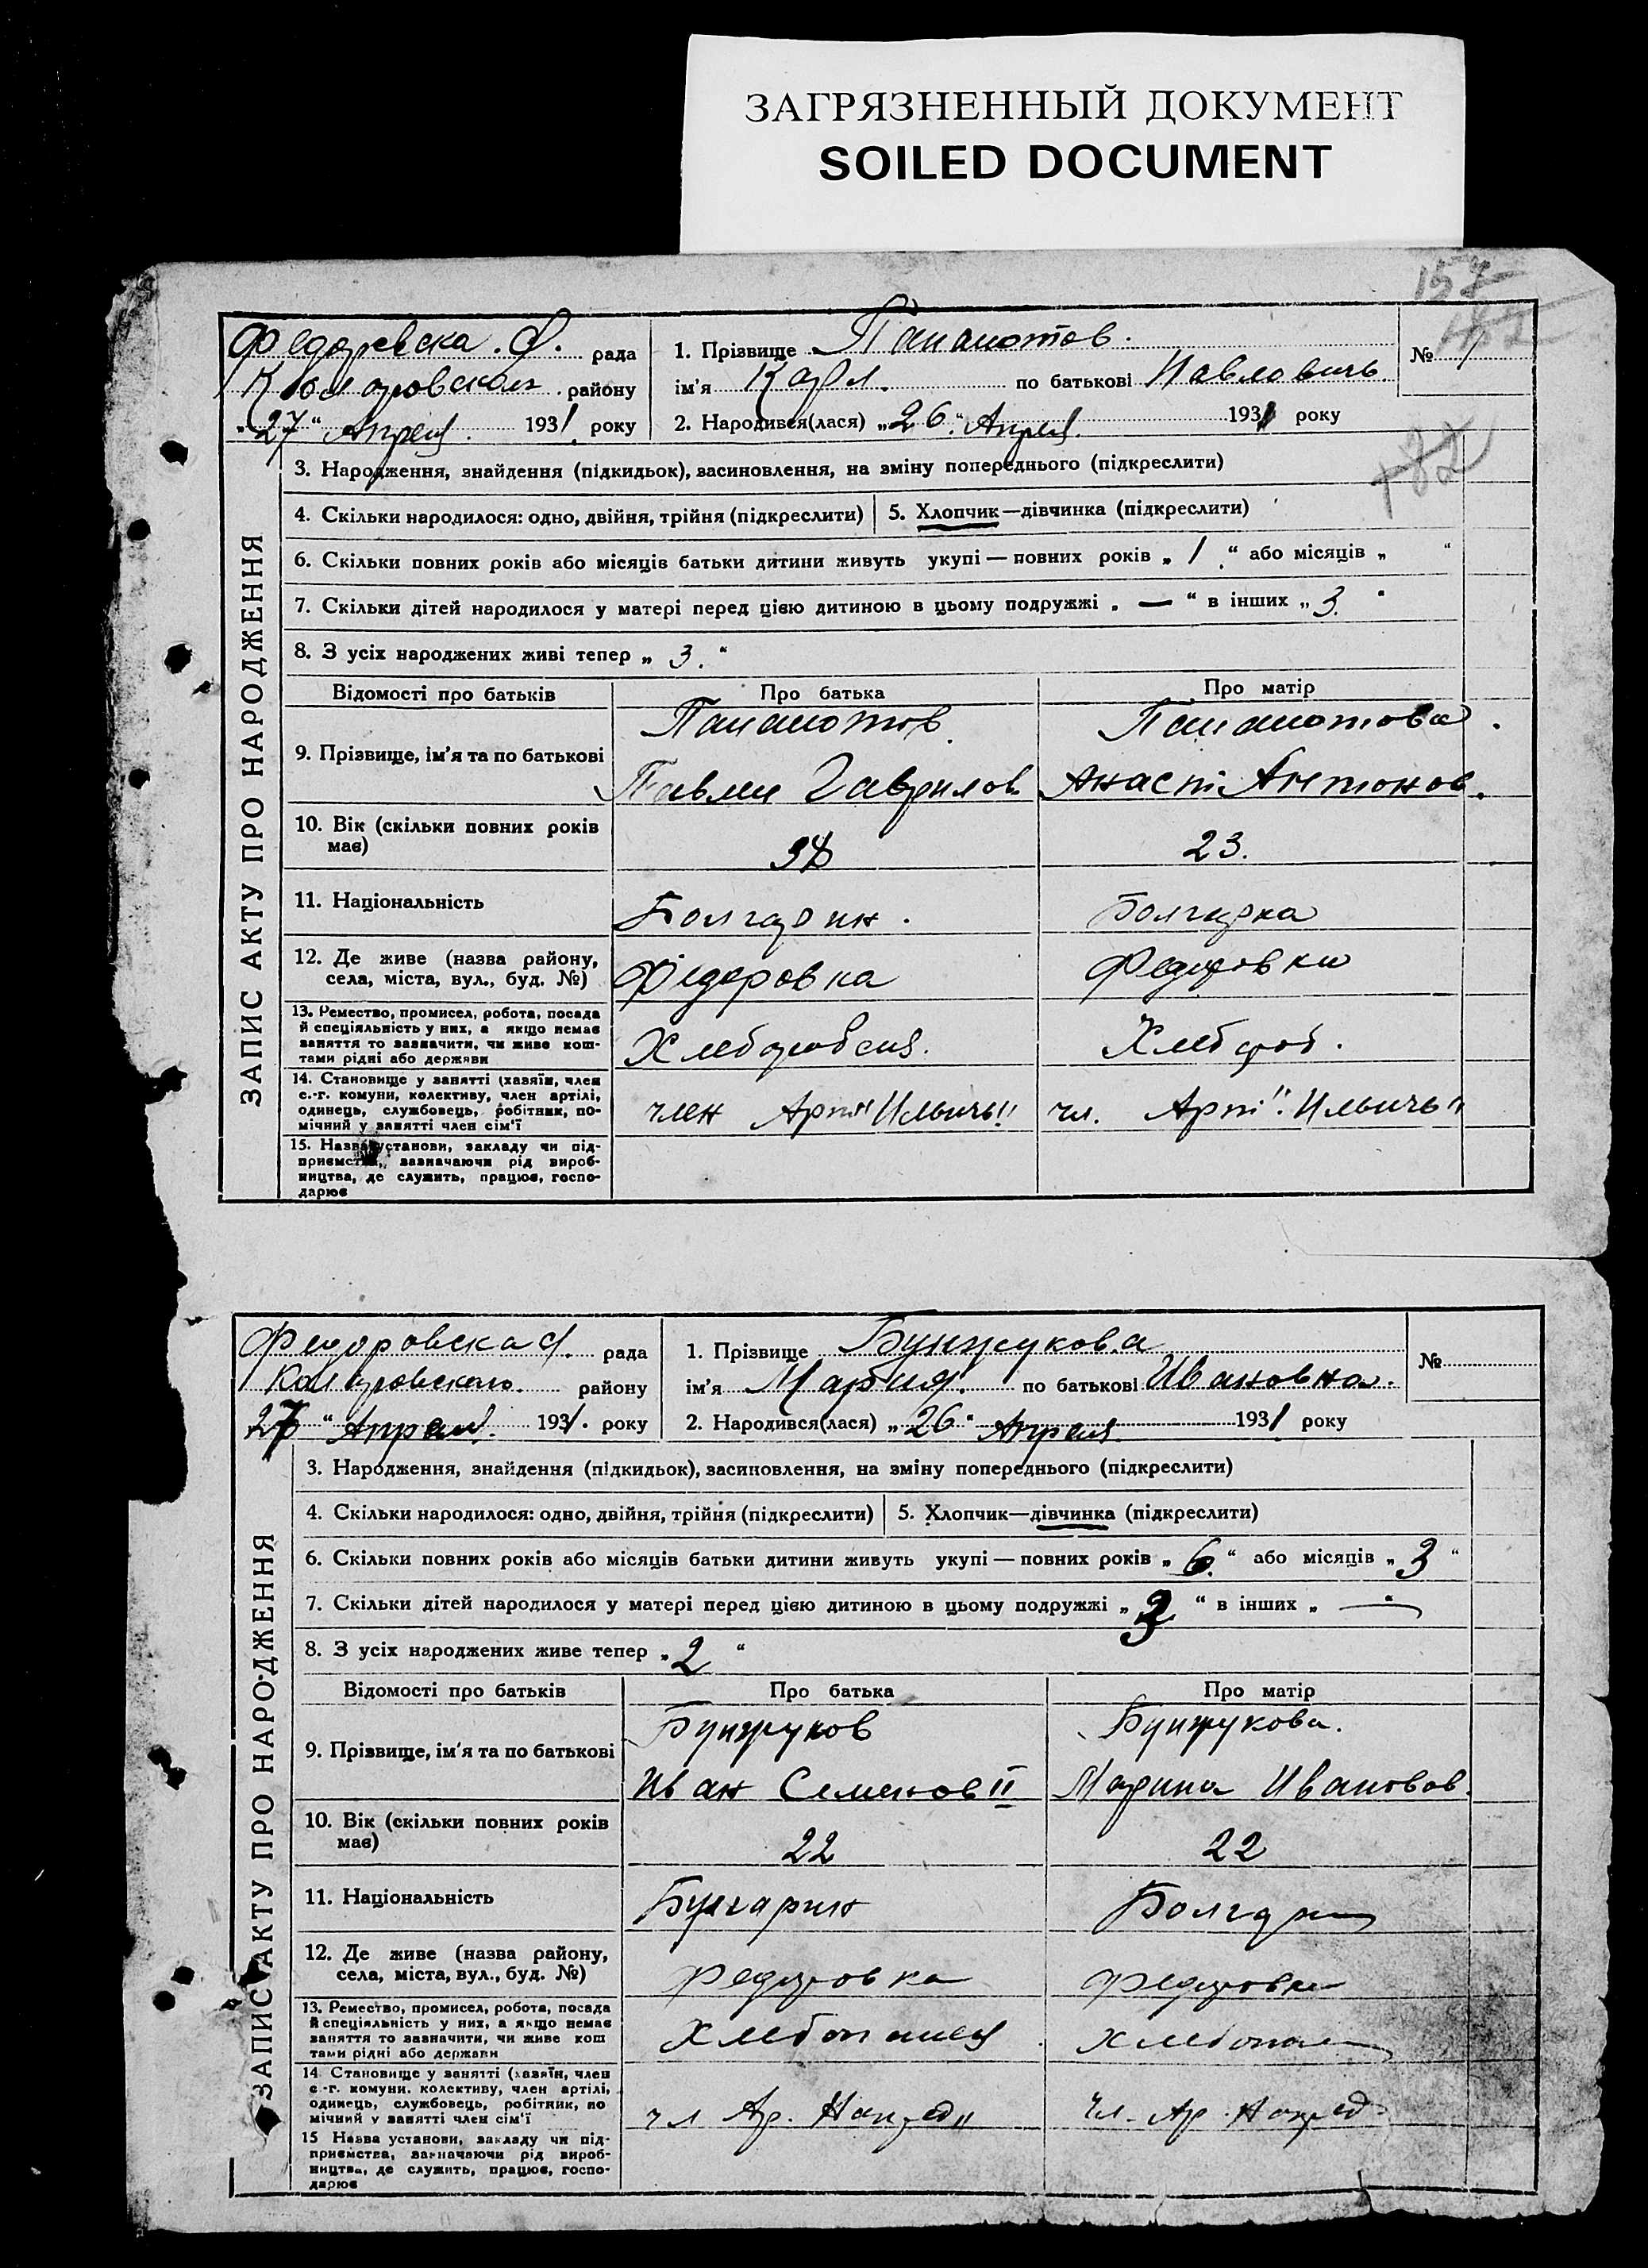 ЗАГРЯЗНЕННЫЙ ДОКУМЕНТ
SOILED DOCUMENT
157
182
Федоровска . С. рада
района
„27“ Апреля. 1931. року
1. Прізвище Панаиотов.
ім'я Карл. по батькові Павловичь.
2. Народився(лася) „26“ Апреля 1931 року
№ 1
182
ЗАПИС АКТУ ПРО НАРОДЖЕННЯ
3. Народження, знайдення (підкидьок), засиновлення, на зміну попереднього (підкреслити)
4. Скільки народилося: одно, двійня, трійня (підкреслити) 5. Хлопчик—дівчинка (підкреслити)
6. Скільки повних років або місяців батьки дитини живуть укупі — повних років „ 1 “ або місяців „ “
7. Скільки дітей народилося у матері перед цією дитиною в цьому подружжі „ — “ в інших „ 3. “
8. З усіх народжених живі тепер „ 3. “
Відомості про батьків Про батька Про матір
9. Прізвище, ім'я та по батькові
Панаиотов Панаиотова.
Павли Гаврилов Анасті Антонов.
10. Вік (скільки повних років має) 23.
11. Національність Болгарин. Болгарка
12. Де живе (назва району, села, міста, вул., буд. №) Федоровка Федоровки
13. Ремество, промисел, робота, посада
й спеціяльність у них, а якщо немає
заняття то зазначити, чи живе кош-
тами рідні або держави
Хлеборобсия. Хлебороб.
14. Становище у занятті (хазяїн, член
с.-г. комуни, колективу, член артілі,
одинець, службовець, робітник, по-
мічний у занятті член сім'ї
член Арт „Ильичь“ чл. Арті „Ильичь“
15. Назва установи, закладу чи під-
приємства, зазначаючи рід вироб-
ництва, де служить, працює, госпо-
дарює
Федоровска С. рада
Коларовского району
27 “ Апреля. 1931. року
1. Прізвище Бунжукова
ім'я Мария. по батькові Ивановна.
2. Народився(лася) „26“ Апреля 1931 року
№
ЗАПИС АКТУ ПРО НАРОДЖЕННЯ
3. Народження, знайдення (підкидьок), засиновлення, на зміну попереднього (підкреслити)
4. Скільки народилося: одно, двійня, трійня (підкреслити) 5. Хлопчик—дівчинка (підкреслити)
6. Скільки повних років або місяців батьки дитини живуть укупі — повних років „ 6. “ або місяців „ 3 “
7. Скільки дітей народилося у матері перед цією дитиною в цьому подружжі „ 3 “ в інших „ — “
8. З усіх народжених живе тепер „ 2 “
Відомості про батьків Про батька Про матір
9. Прізвище, ім'я та по батькові
Бунжуков Бунжукова.
Иван Семенов II Марина Иванов
10. Вік (скільки повних років має) 22 22
11. Національність Булгарин Болгарк
12. Де живе (назва району, села, міста, вул., буд. №) Федоровка Федоровки
13. Ремество, промисел, робота, посада
й спеціяльність у них, а якщо немає
заняття то зазначити, чи живе кош
тами рідні або держави
Хлебопашец Хлебопаш
14 Становище у занятті (хазяїн, член
с.-г. комуни, колективу, член артілі,
одинець, службовець, робітник, по
мічний у занятті член сім'ї
чл Ар. Напред“ Чл. Ар. Напред
15 Назва установи, закладу чи під-
приємства, зазначаючи рід вироб-
ництва, де служить, працює, госпо-
дарює